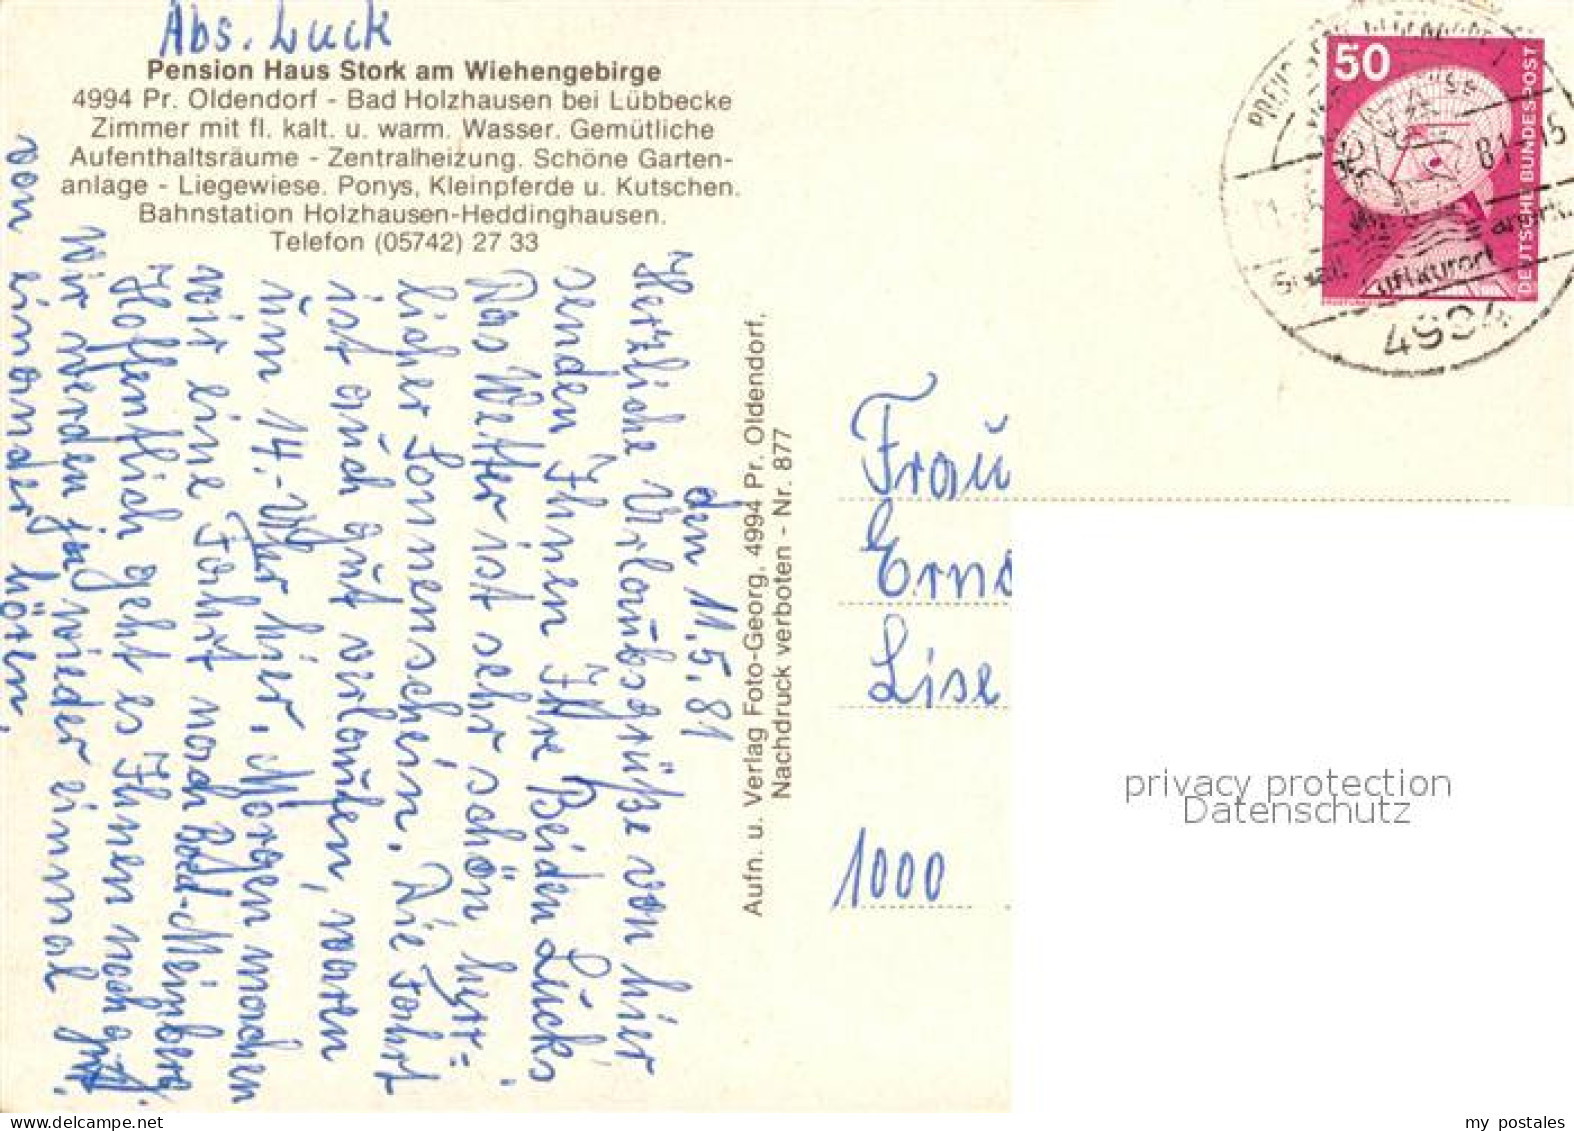 Abs. Luck
Pension Haus Stork am Wiehengebirge
4994 Pr. Oldendorf - Bad Holzhausen bei Lübbecke
Zimmer mit fl. kalt. u. warm. Wasser. Gemütliche
Aufenthaltsräume - Zentralheizung. Schöne Garten-
anlage - Liegewiese. Ponys, Kleinpferde u. Kutschen.
Bahnstation Holzhausen-Heddinghausen.
Telefon (05742) 27 33
den 11.5.81
Herzliche Urlaubsgrüße von hier
senden Ihnen Ihre Beiden Luck's
Das Wetter ist sehr schön herr=
licher Sonnenschein. Die Fahrt
ist auch gut verlaufen, waren
um 14.-Uhr hier. Morgen machen
wir eine Fahrt nach Bad-Meinberg.
Hoffentlich geht es Ihnen noch gut.
Wir werden ja wieder einmal
von einander hören.
Aufn. u. Verlag Foto-Georg, 4994 Pr. Oldendorf.
Nachdruck verboten - Nr. 877
50
DEUTSCHE BUNDESPOST
81-15
Luftkurort
4994
Frau
Lise
1000
privacy protection
Datenschutz
my postales